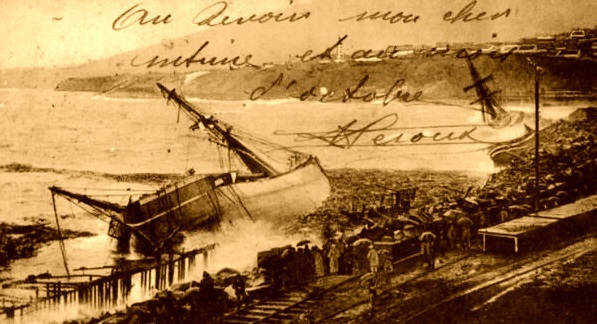 Au Revoir mon cher
intime et au mois
d'octobre
Heroux